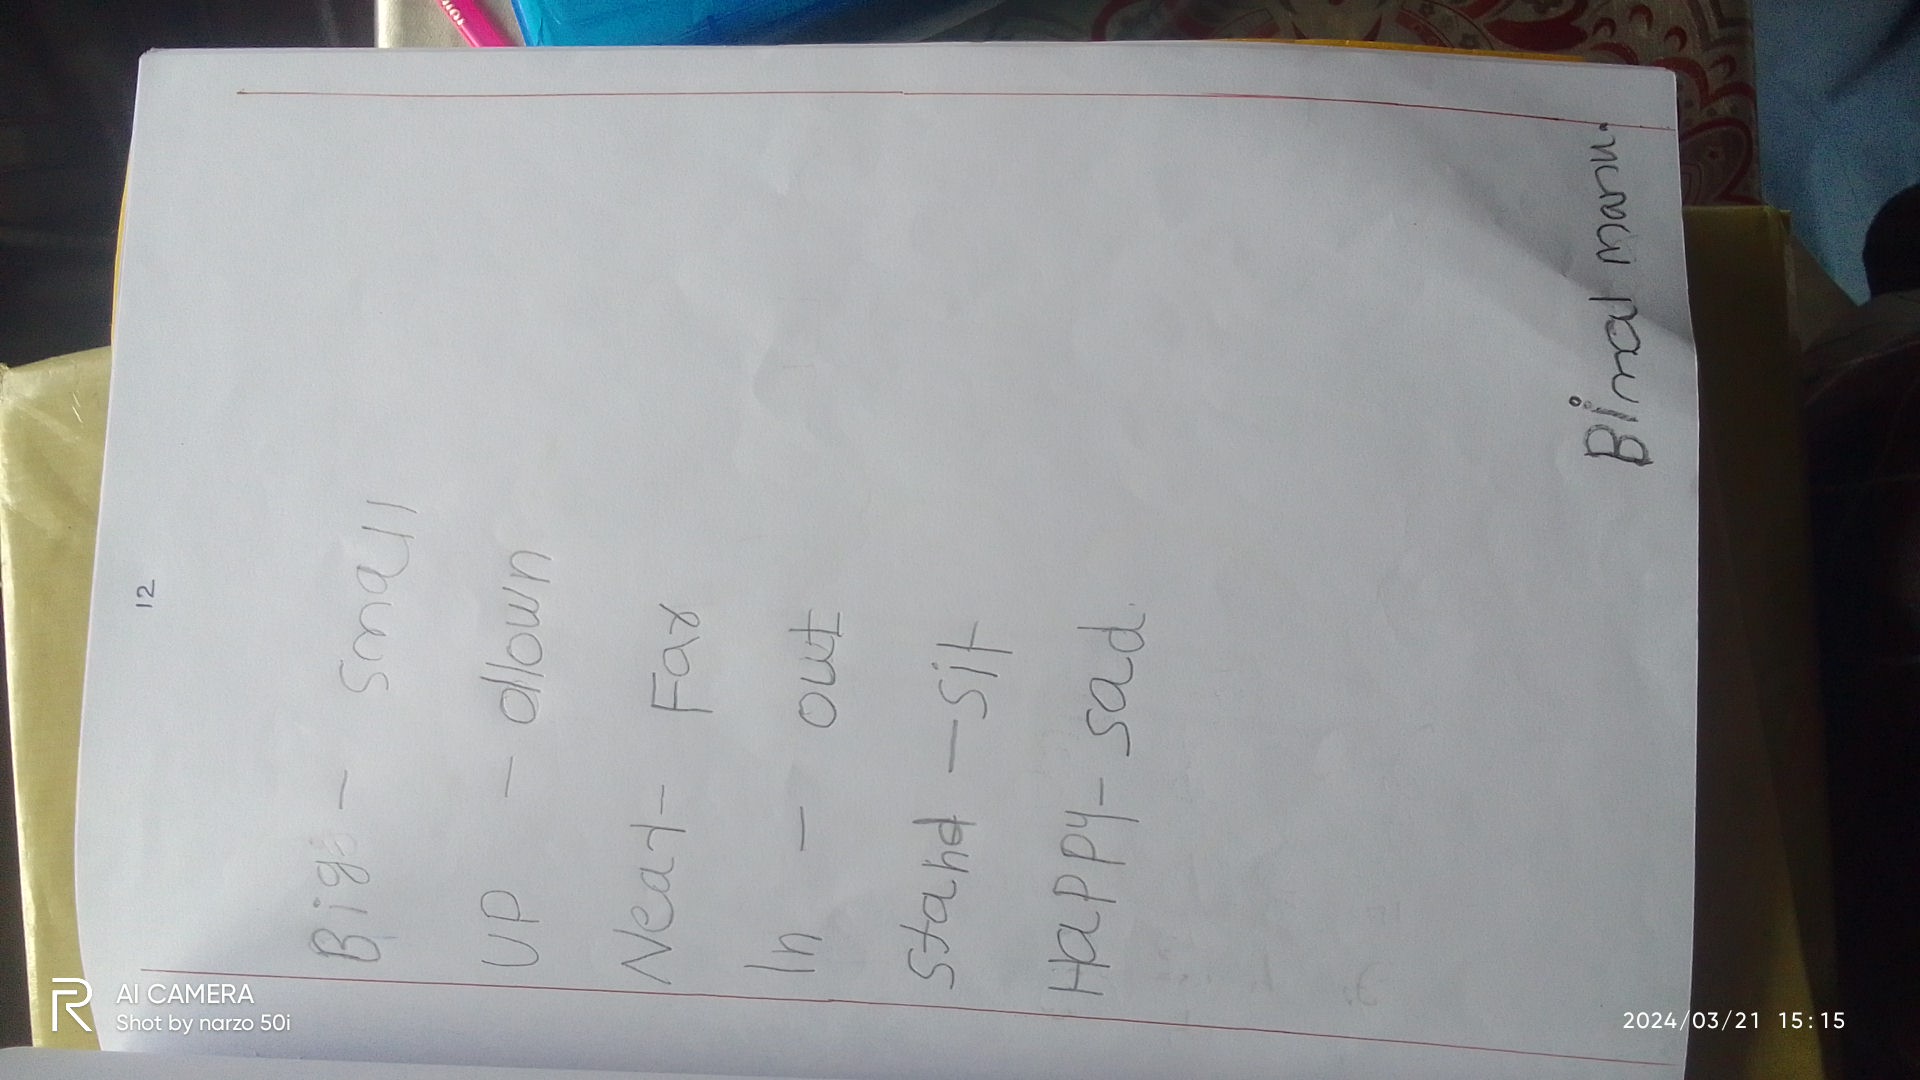 12
Big - Small
UP - down
Near - Far
In - out
stand - sit
Happy - sad.
AI CAMERA
Shot by narzo 50i
2024/03/21 15:15